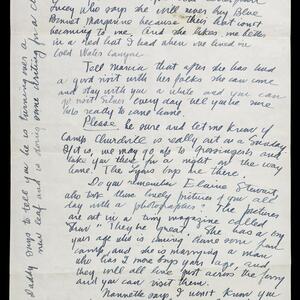 Lucy who says she will never buy Blue
Bonnet Margarine because their hat isn't
becoming to me. And she likes me better
in a red hat I had when we lived in
Cold Water Canyon.
Tell Marcia that after she has had
a good visit with her folks she can come
and stay with you a while and you can
go visit every day till you're sure
he's ready to come home.
Please be sure and let me know if
Camp Churchill is really out on a Sunday
if it is, we may go to Grossingers and
take you there for a night on the way
home. The Lyons boys are there.
Do you remember Elaine Stewart,
who took those lovely pictures of you all
day with a photographer? The pictures
are out in a tiny magazine called
"They're great." She has a boy
your age who is going same
camp, and she is marrying a man
who has 2 more boys your age, and
they will all live just across the ferry
and you can visit them.
Nannette says, I won't know you
Daddy says to tell you he is turning over a
new leaf and is doing some writing for a